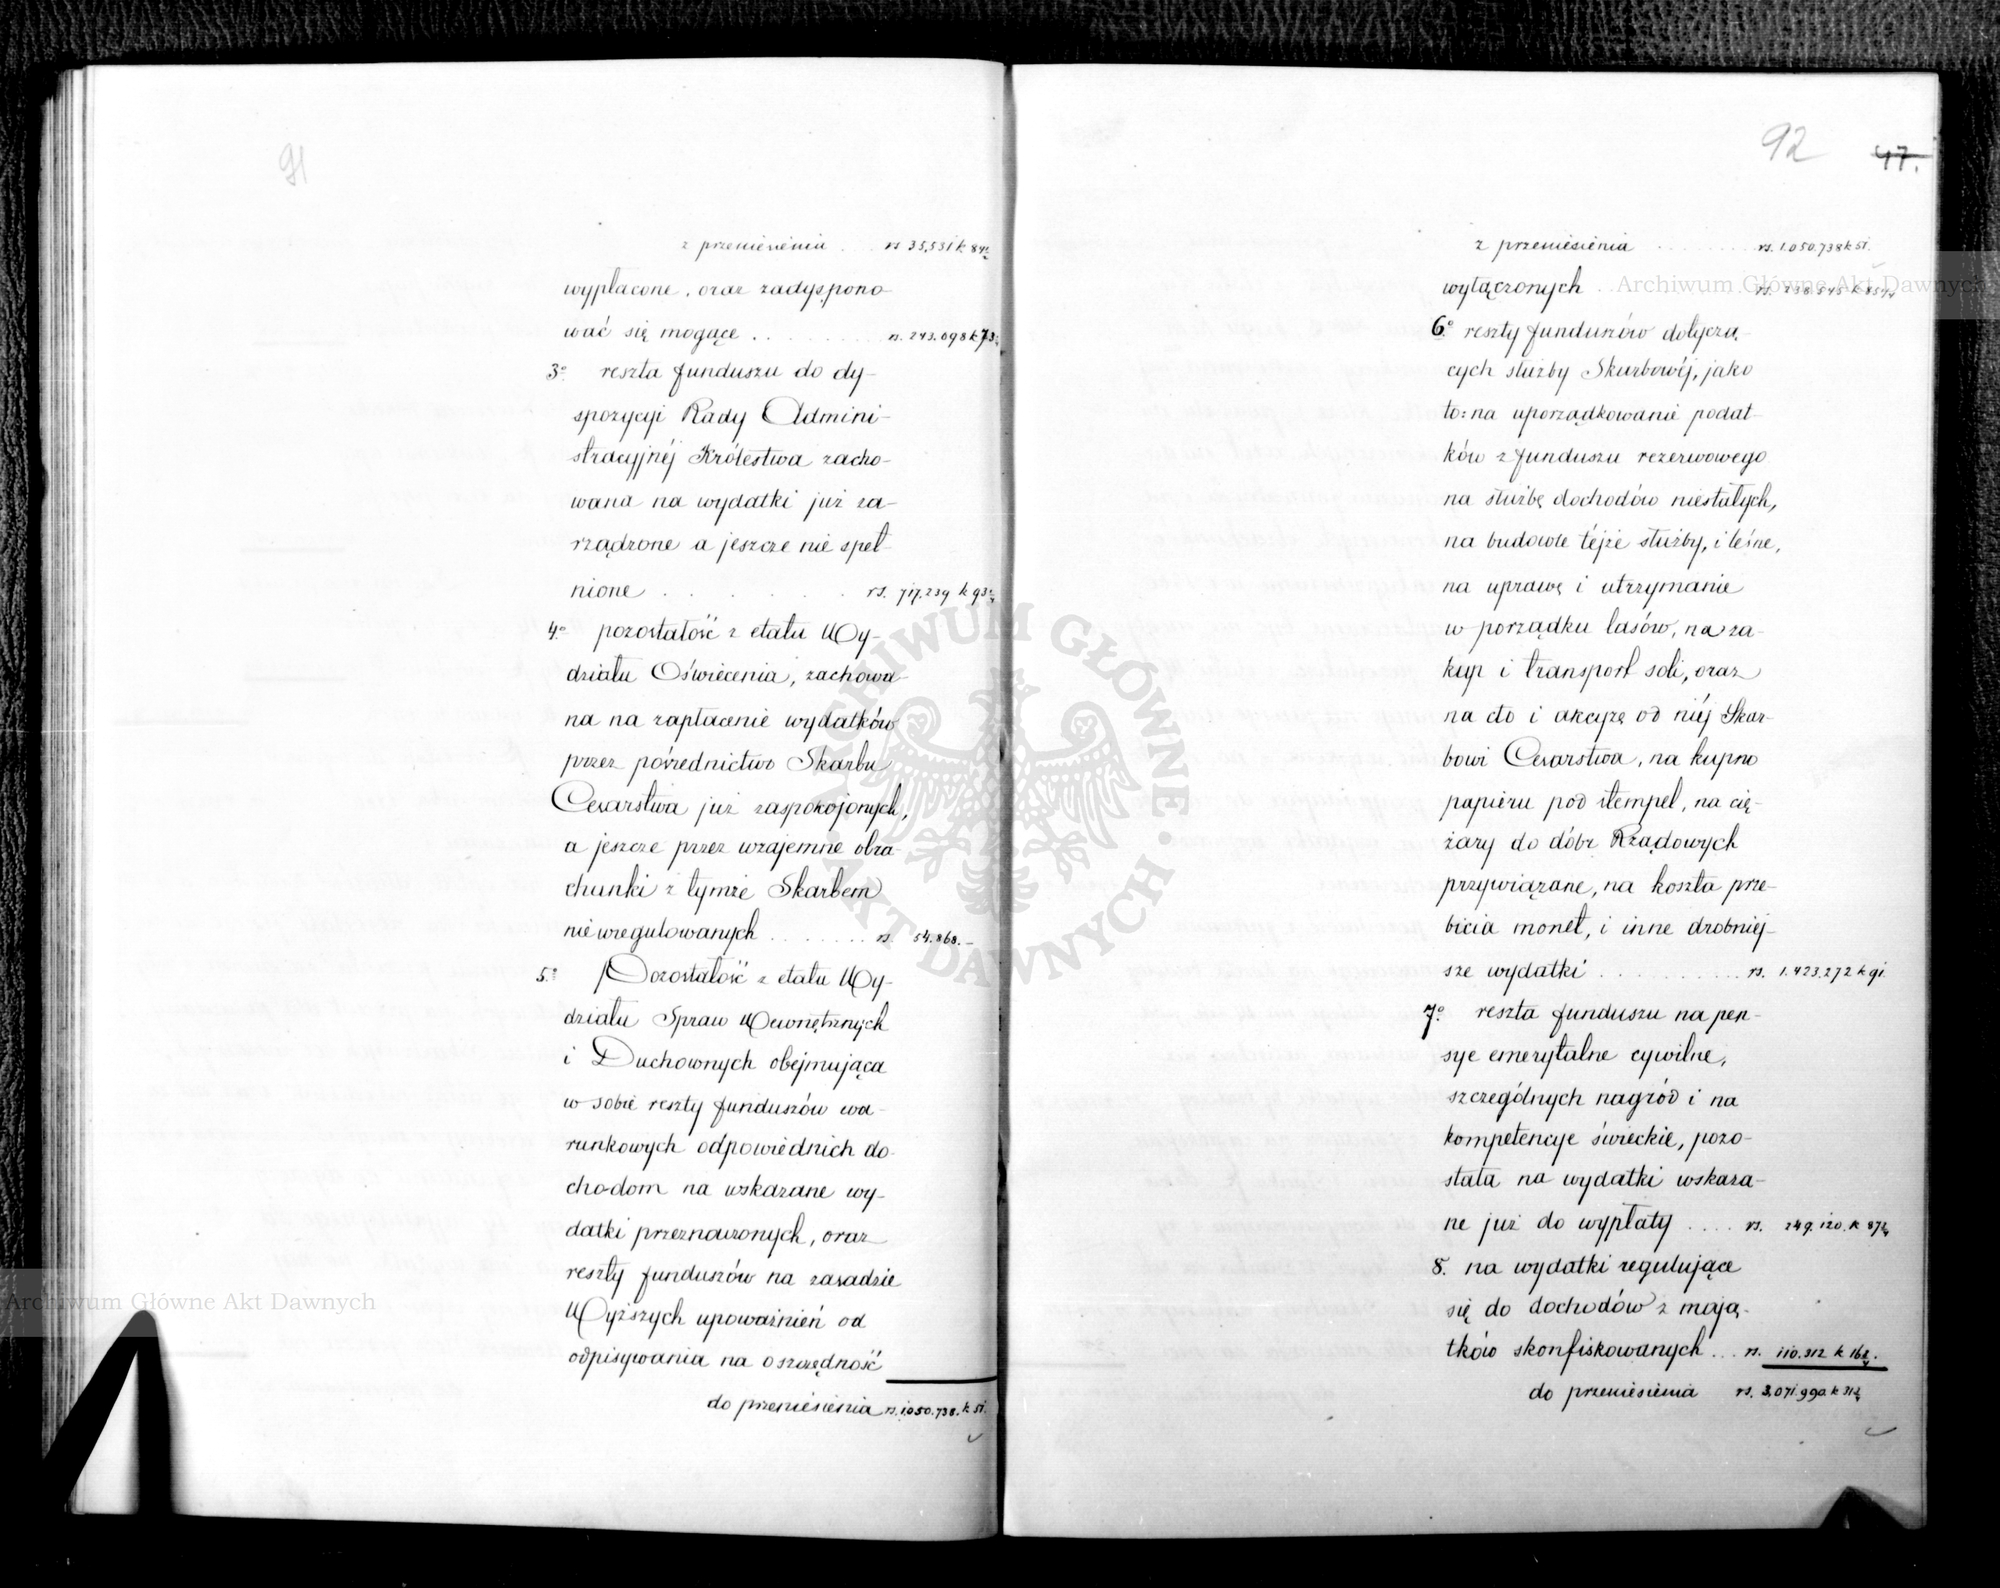 91
z przeniesienia . . . rs 35,531 k 84½
wypłacone, oraz zadyspono-
wać się mogące . . . . . . rs. 243.098 k 73½
3º reszta funduszu do dy-
spozycyi Rady Admini-
stracyjnéj Królestwa zacho-
wana na wydatki już za-
rządzone a jeszcze nie speł-
nione . . . . . . rs. 717.239 k 93½
4º pozostałość z etatu Wy-
działu Oświecenia, zachowa-
na na zapłacenie wydatków
przez pośrednictwo Skarbu
Cesarstwa już zaspokojonych,
a jeszcze przez wzajemne obra-
chunki z tymże Skarbem
nie uregulowanych . . . . . . rs. 54.868.–
5º Pozostałość z etatu Wy-
działu Spraw Wewnętrznych
i Duchownych obejmująca
w sobie reszty funduszów wa-
runkowych odpowiednich do-
chodom na wskazane wy-
datki przeznaczonych, oraz
reszty funduszów na zasadzie
Wyższych upoważnień od
odpisywania na oszczędność
do przeniesienia rs. 1.050.738. k 51.
92 47.
z przeniesienia . . . . . . rs. 1.050.738 k 51.
wyłączonych . . . . . . rs. 238.545 k 85¼
6º reszty funduszów dotycza-
cych służby Skarbowéj, jako
to: na uporządkowanie podat-
ków z funduszu rezerwowego
na służbę dochodów niestałych,
na budowle téjże służby, i leśne,
na uprawę i utrzymanie
w porządku lasów, na za-
kup i transport soli, oraz
na cło i akcyzę od niéj Skar-
bowi Cesarstwa, na kupno
papieru pod stempel, na cię-
żary do dóbr Rządowych
przywiązane, na koszta prze-
bicia monet, i inne drobniej-
sze wydatki . . . . . . rs. 1.423.272 k 91.
7º reszta funduszu na pen-
sye emerytalne cywilne,
szczególnych nagród i na
kompetencye świeckie, pozo-
stała na wydatki wskaza-
ne już do wypłaty . . . . rs. 249.120. k 87½
8. na wydatki regulujące
się do dochodów z mają-
tków skonfiskowanych . . . rs. 110.312 k 16½.
do przeniesienia rs. 3.071.990 k 31½
Archiwum Główne Akt Dawnych
Archiwum Główne Akt Dawnych
ARCHIWUM GŁÓWNE
AKT DAWNYCH